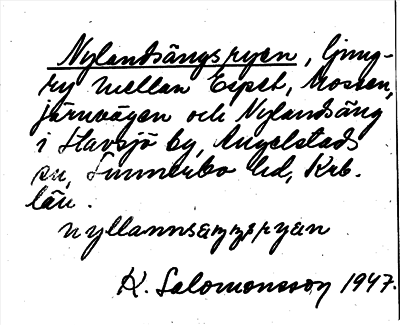 Nylandsängsryen, ljung-
ry mellan Expet, mossen,
järnvägen och Nylandsäng
i Havsjö by, Angelstads
sn, Sunnerbo hd, Krb.
län.
nyllannsæŋŋsryan
K. Salomonsson 1947.